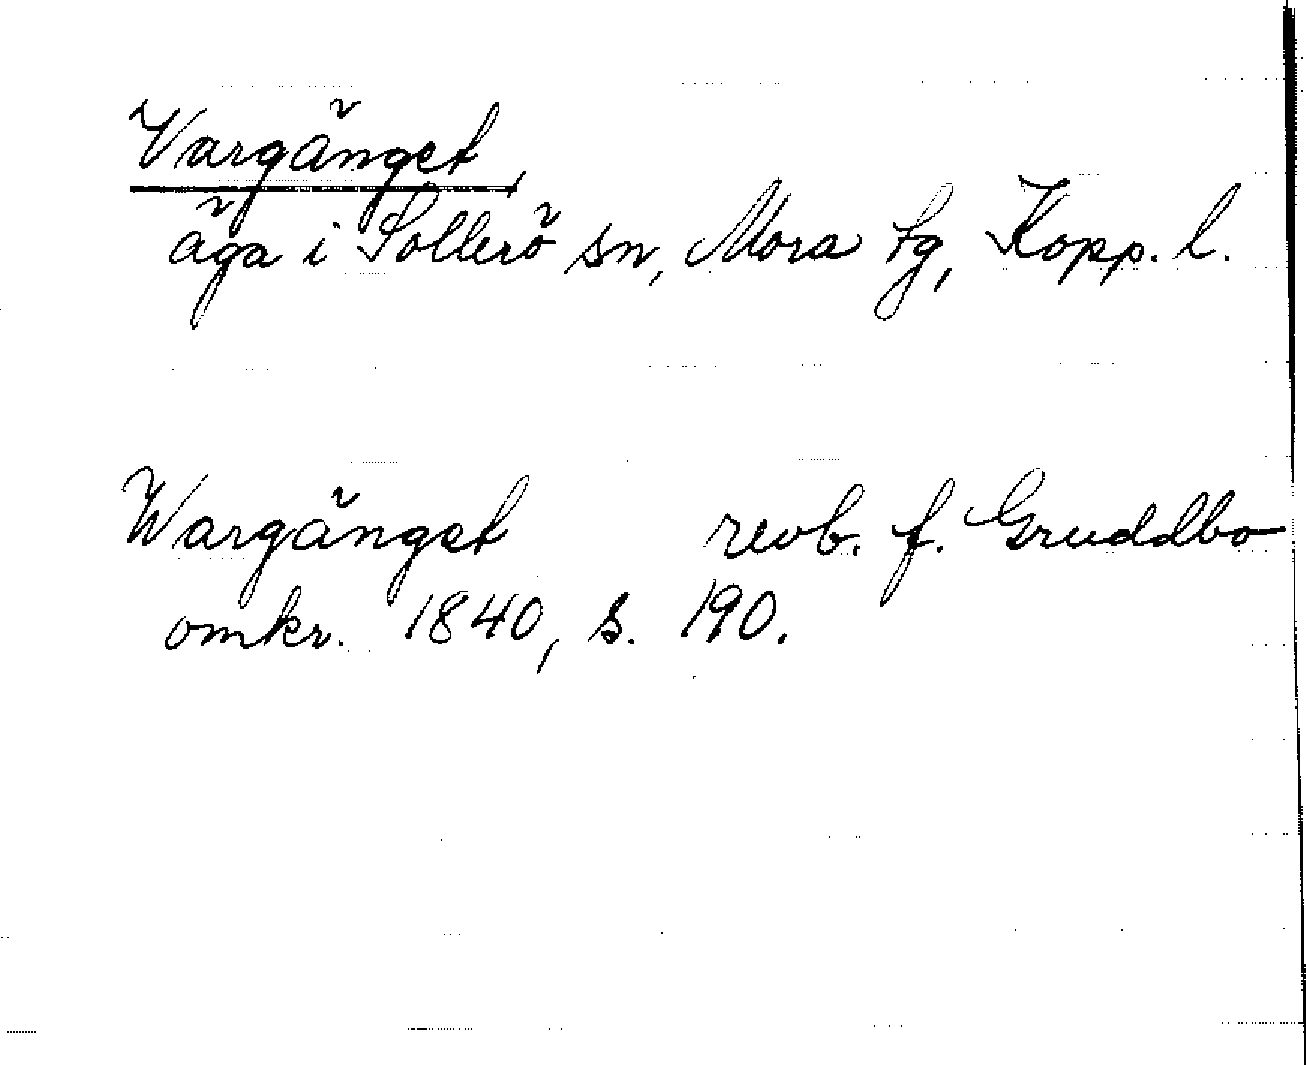 Vargänget,
äga i Sollerö sn, Mora tg, Kopp. l.
Wargänget revb. f. Gruddbo
omkr. 1840, s. 190.